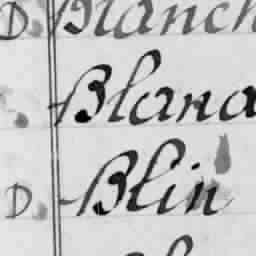 D. Blanch
Blana
D. Blin